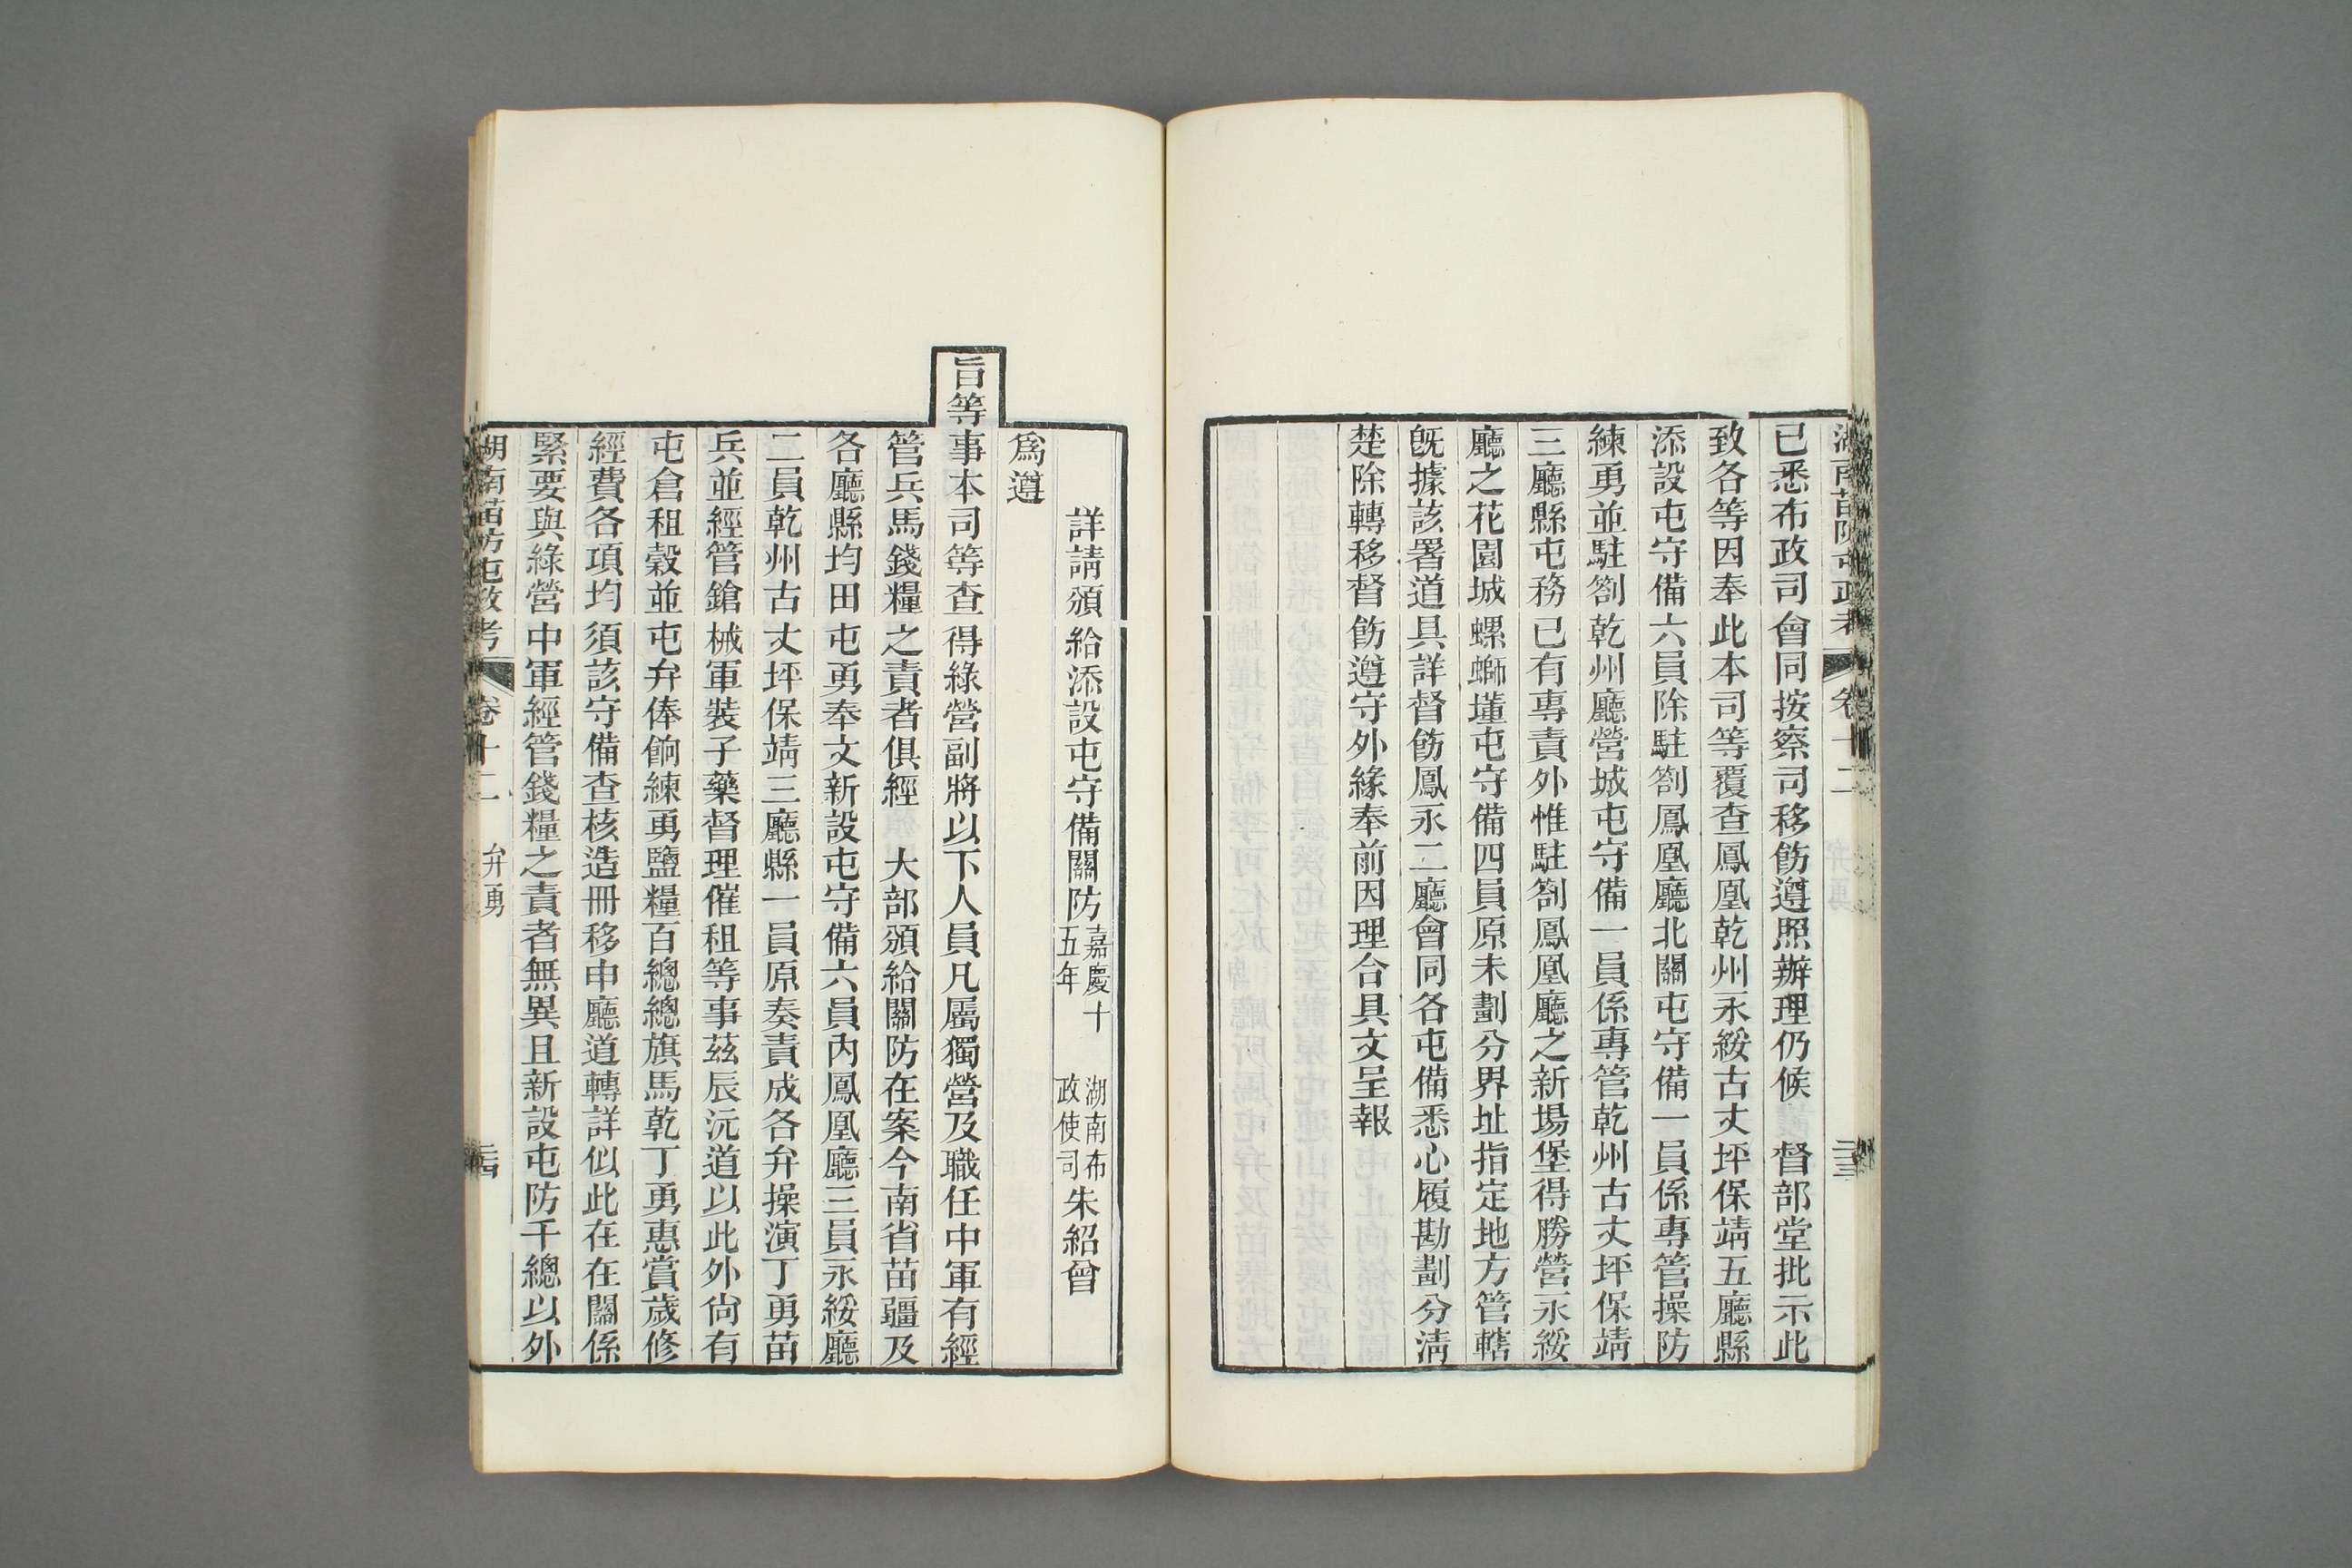 湖南苗防屯政考 卷十二 弁勇 二十三
已悉布政司會同按察司移飭遵照辦理仍候 督部堂批示此
致各等因奉此本司等覆查鳳凰乾州永綏古丈坪保靖五廳縣
添設屯守備六員除駐劄鳳凰廳北關屯守備一員係專管操防
練勇並駐劄乾州廳營城屯守備一員係專管乾州古丈坪保靖
三廳縣屯務已有專責外惟駐劄鳳凰廳之新場堡得勝營永綏
廳之花園城螺螄墐屯守備四員原未劃分界址指定地方管轄
旣據該署道具詳督飭鳳永二廳會同各屯備悉心履勘劃分淸
楚除轉移督飭遵守外緣奉前因理合具文呈報
詳請頒給添設屯守備關防 嘉慶十五年 湖南布政使司朱紹曾
爲遵
旨等事本司等查得綠營副將以下人員凡屬獨營及職任中軍有經
管兵馬錢糧之責者俱經 大部頒給關防在案今南省苗疆及
各廳縣均田屯勇奉文新設屯守備六員內鳳凰廳三員永綏廳
二員乾州古丈坪保靖三廳縣一員原奏責成各弁操演丁勇苗
兵並經管鎗械軍裝子藥督理催租等事茲辰沅道以此外尙有
屯倉租穀並屯弁俸餉練勇鹽糧百總總旗馬乾丁勇惠賞歲修
經費各項均須該守備查核造冊移申廳道轉詳似此在在關係
緊要與綠營中軍經管錢糧之責者無異且新設屯防千總以外
湖南苗防屯政考 卷十二 弁勇 二十四